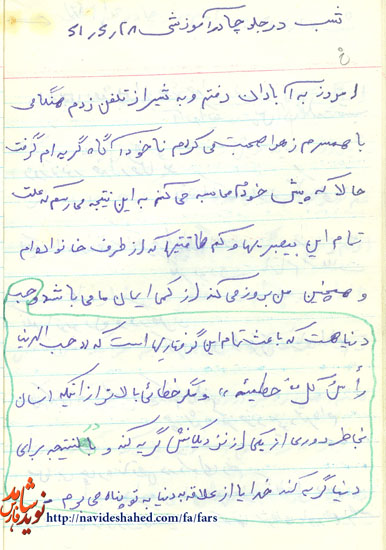 شب در جلو چادر آموزشی ۶۱/۶/۲۸
امروز به آبادان رفتم و به شیراز تلفن زدم هنگامی
با همسرم زهرا صحبت می کردم ناخودآگاه گریه ام گرفت
حالا که پیش خودم محاسبه می کنم به این نتیجه می رسم که علت
تمام این بیصبریها و کم طاقتیها که از طرف خانواده ام
و همچنین من بروز می کند از کمی ایمان ما می باشد و حب
دنیا هست که باعث تمام این گرفتاریها است که «حب الدنیا
رأس کل خطیئة» و مگر خطائی بالاتر از اینکه انسان
بخاطر دوری از یکی از نزدیکانش گریه کند و بالنتیجه برای
دنیا گریه کند خدایا از علاقه به دنیا به تو پناه می برم
نوید شاهد فارس
http://navideshahed.com/fa/fars